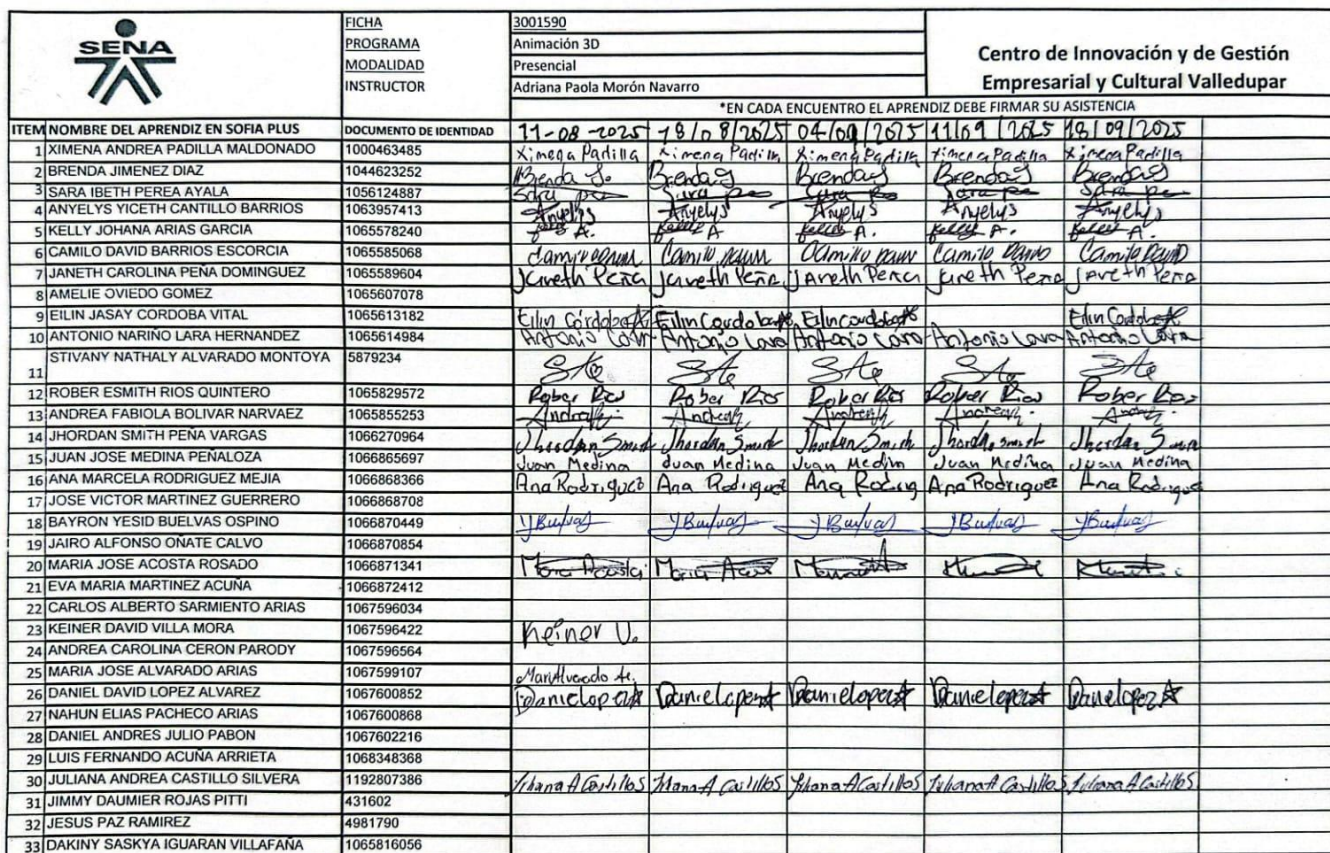 SENA
FICHA 3001590
PROGRAMA Animación 3D
MODALIDAD Presencial
INSTRUCTOR Adriana Paola Morón Navarro
Centro de Innovación y de Gestión
Empresarial y Cultural Valledupar
*EN CADA ENCUENTRO EL APRENDIZ DEBE FIRMAR SU ASISTENCIA
ITEM NOMBRE DEL APRENDIZ EN SOFIA PLUS DOCUMENTO DE IDENTIDAD 11-08-2025 18/08/2025 04/09/2025 11/09/2025 18/09/2025
1 XIMENA ANDREA PADILLA MALDONADO 1000463485 Ximena Padilla Ximena Padilla Ximena Padilla Ximena Padilla Ximena Padilla
2 BRENDA JIMENEZ DIAZ 1044623252 Brenda J. Brenda J Brenda J Brenda J Brenda J
3 SARA IBETH PEREA AYALA 1056124887 Sara pe Sara pe Sara pe Sara pe Sara pe
4 ANYELYS YICETH CANTILLO BARRIOS 1063957413 Anyelys Anyelys Anyelys Anyelys Anyelys
5 KELLY JOHANA ARIAS GARCIA 1065578240 Kelly A. Kelly A Kelly A. Kelly A. Kelly A.
6 CAMILO DAVID BARRIOS ESCORCIA 1065585068 Camilo David Camilo David Camilo David Camilo David Camilo David
7 JANETH CAROLINA PEÑA DOMINGUEZ 1065589604 Janeth Peña Janeth Peña Janeth Peña Janeth Peña Janeth Peña
8 AMELIE OVIEDO GOMEZ 1065607078
9 EILIN JASAY CORDOBA VITAL 1065613182 Eilin Córdoba Eilin Cordoba Eilin Cordoba Eilin Cordoba
10 ANTONIO NARIÑO LARA HERNANDEZ 1065614984 Antonio Lara Antonio Lara Antonio Lara Antonio Lara Antonio Lara
11 STIVANY NATHALY ALVARADO MONTOYA 5879234 Ste Ste Ste Ste Ste
12 ROBER ESMITH RIOS QUINTERO 1065829572 Rober Rios Rober Rios Rober Rios Rober Rios Rober Rios
13 ANDREA FABIOLA BOLIVAR NARVAEZ 1065855253
14 JHORDAN SMITH PEÑA VARGAS 1066270964 Jhordan Smith Jhordan Smith Jhordan Smith Jhordan Smith Jhordan Smith
15 JUAN JOSE MEDINA PEÑALOZA 1066865697 Juan Medina Juan Medina Juan Medina Juan Medina Juan Medina
16 ANA MARCELA RODRIGUEZ MEJIA 1066868366 Ana Rodriguez Ana Rodriguez Ana Rodrig Ana Rodriguez Ana Rodriguez
17 JOSE VICTOR MARTINEZ GUERRERO 1066868708
18 BAYRON YESID BUELVAS OSPINO 1066870449 YBuelvas YBuelvas YBuelvas YBuelvas YBuelvas
19 JAIRO ALFONSO OÑATE CALVO 1066870854
20 MARIA JOSE ACOSTA ROSADO 1066871341 Maria Acosta Maria Acos
21 EVA MARIA MARTINEZ ACUÑA 1066872412
22 CARLOS ALBERTO SARMIENTO ARIAS 1067596034
23 KEINER DAVID VILLA MORA 1067596422 Keiner V.
24 ANDREA CAROLINA CERON PARODY 1067596564
25 MARIA JOSE ALVARADO ARIAS 1067599107 MariAlvarado Ar.
26 DANIEL DAVID LOPEZ ALVAREZ 1067600852 Danielopez Danielopez Danielopez Danielopez Danielopez
27 NAHUN ELIAS PACHECO ARIAS 1067600868
28 DANIEL ANDRES JULIO PABON 1067602216
29 LUIS FERNANDO ACUÑA ARRIETA 1068348368
30 JULIANA ANDREA CASTILLO SILVERA 1192807386 Juliana A Castillo S Juliana A Castillo S Juliana A Castillo S Juliana A Castillo S Juliana A Castillo S
31 JIMMY DAUMIER ROJAS PITTI 431602
32 JESUS PAZ RAMIREZ 4981790
33 DAKINY SASKYA IGUARAN VILLAFAÑA 1065816056